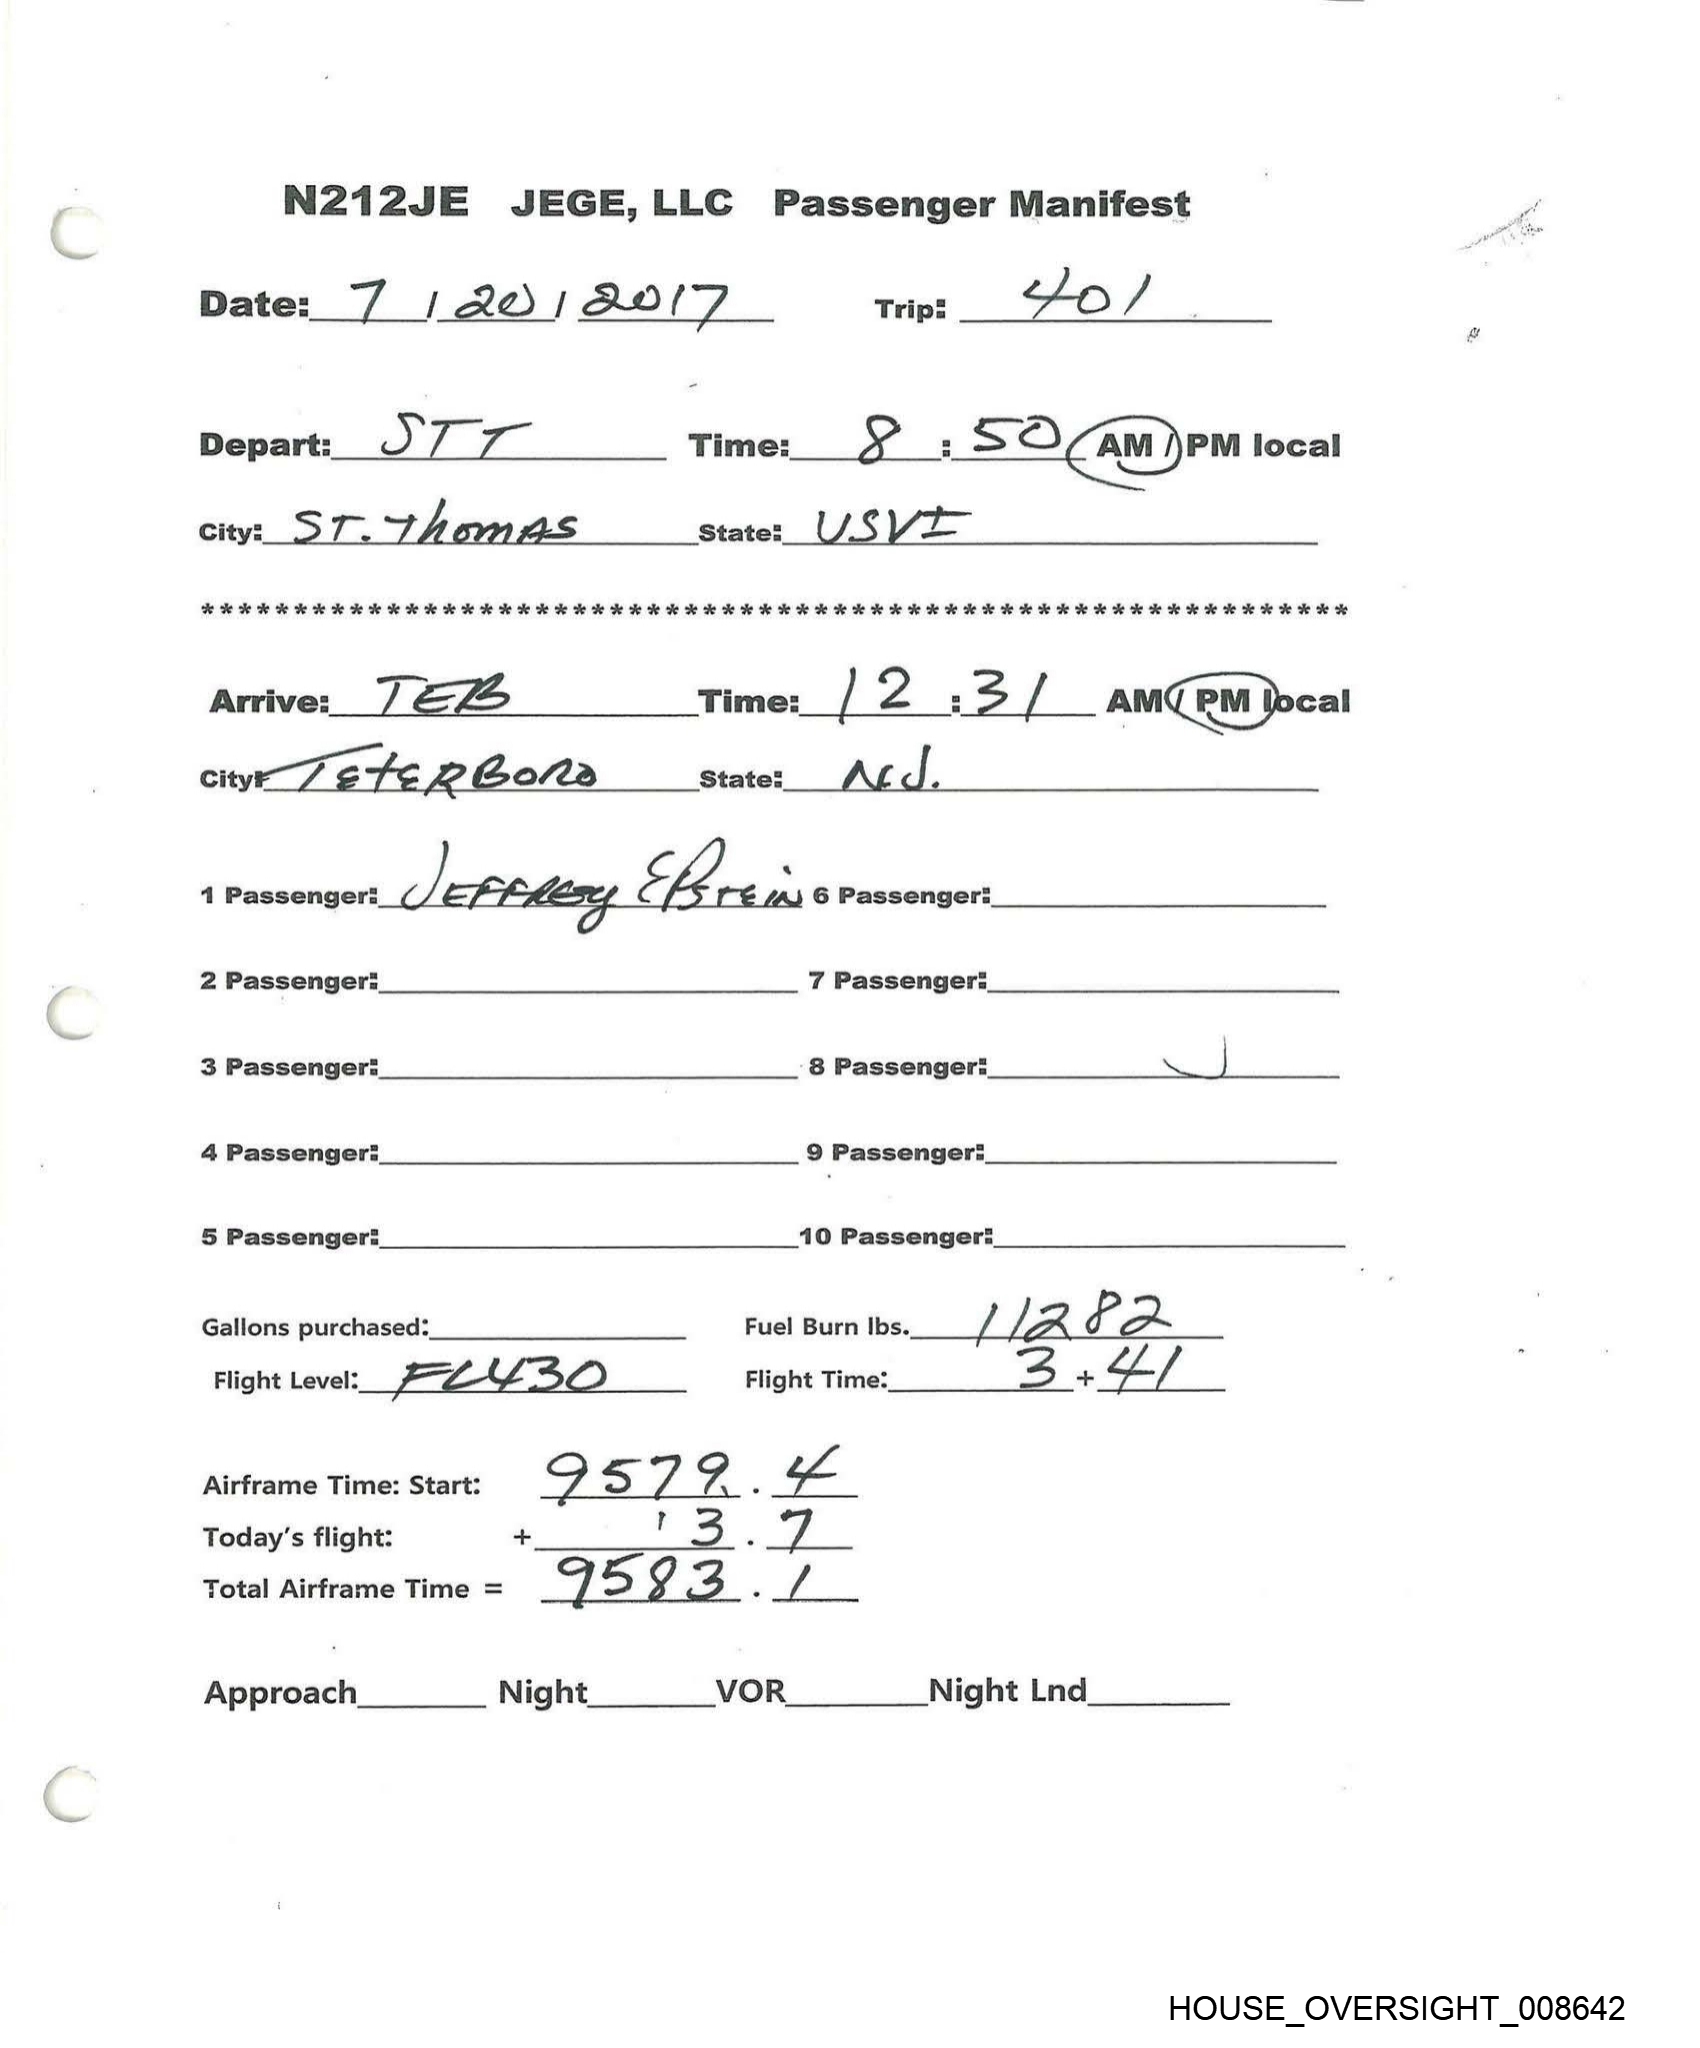 N212JE JEGE, LLC Passenger Manifest
Date: 7 / 20 / 2017 Trip: 401
Depart: STT Time: 8 : 50 AM / PM local
City: ST. Thomas State: USVI
******************************************************************
Arrive: TEB Time: 12 : 31 AM / PM local
City: TETERBORO State: N.J.
1 Passenger: JEFFREY EPSTEIN 6 Passenger:
2 Passenger: 7 Passenger:
3 Passenger: 8 Passenger:
4 Passenger: 9 Passenger:
5 Passenger: 10 Passenger:
Gallons purchased: Fuel Burn lbs. 11282
Flight Level: FL430 Flight Time: 3 + 41
Airframe Time: Start: 9579 . 4
Today's flight: + 3 . 7
Total Airframe Time = 9583 . 1
Approach Night VOR Night Lnd
HOUSE_OVERSIGHT_008642